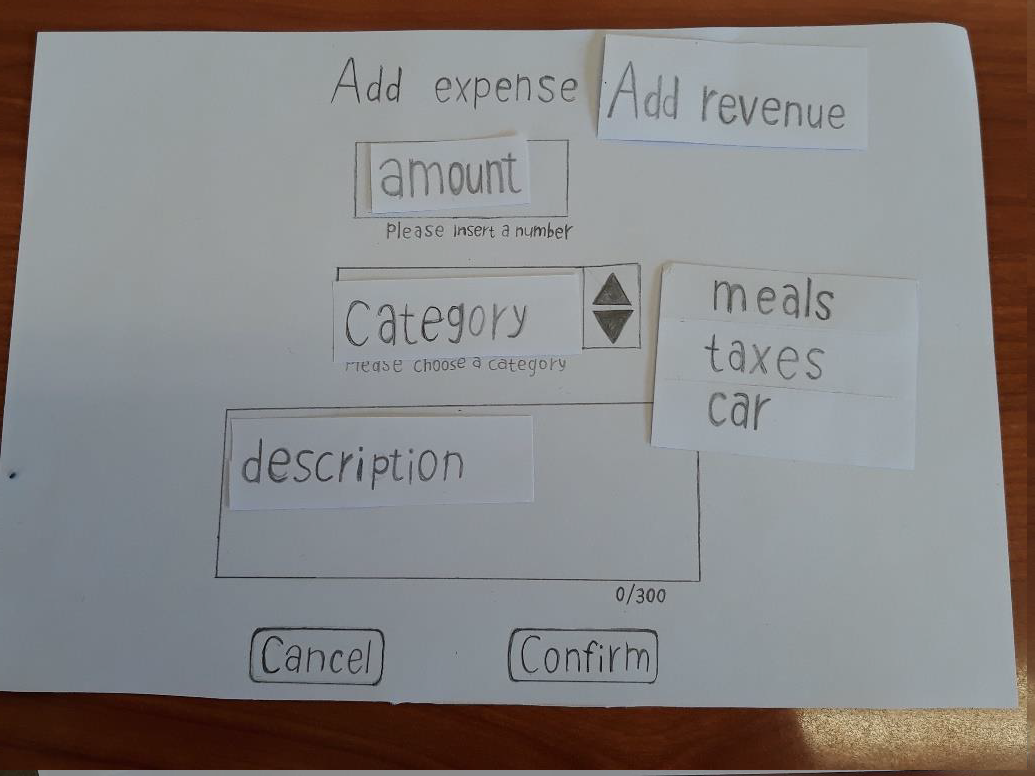 Add expense Add revenue
amount
Please insert a number
Category
Please choose a category
meals
taxes
car
description
0/300
Cancel Confirm